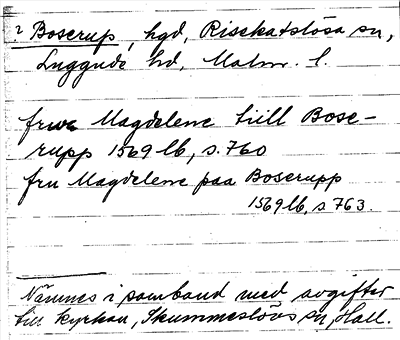 ? Boserup, hgd, Risekatslösa sn,
Luggude hd, Malm. l.
frwe Magdelene tiill Bose-
rupp 1569 lb, s. 760
fru Magdelene paa Boserupp
1569 lb, s 763.
Nämnes i samband med avgifter
till kyrkan, Skummeslövs sn, Hall.